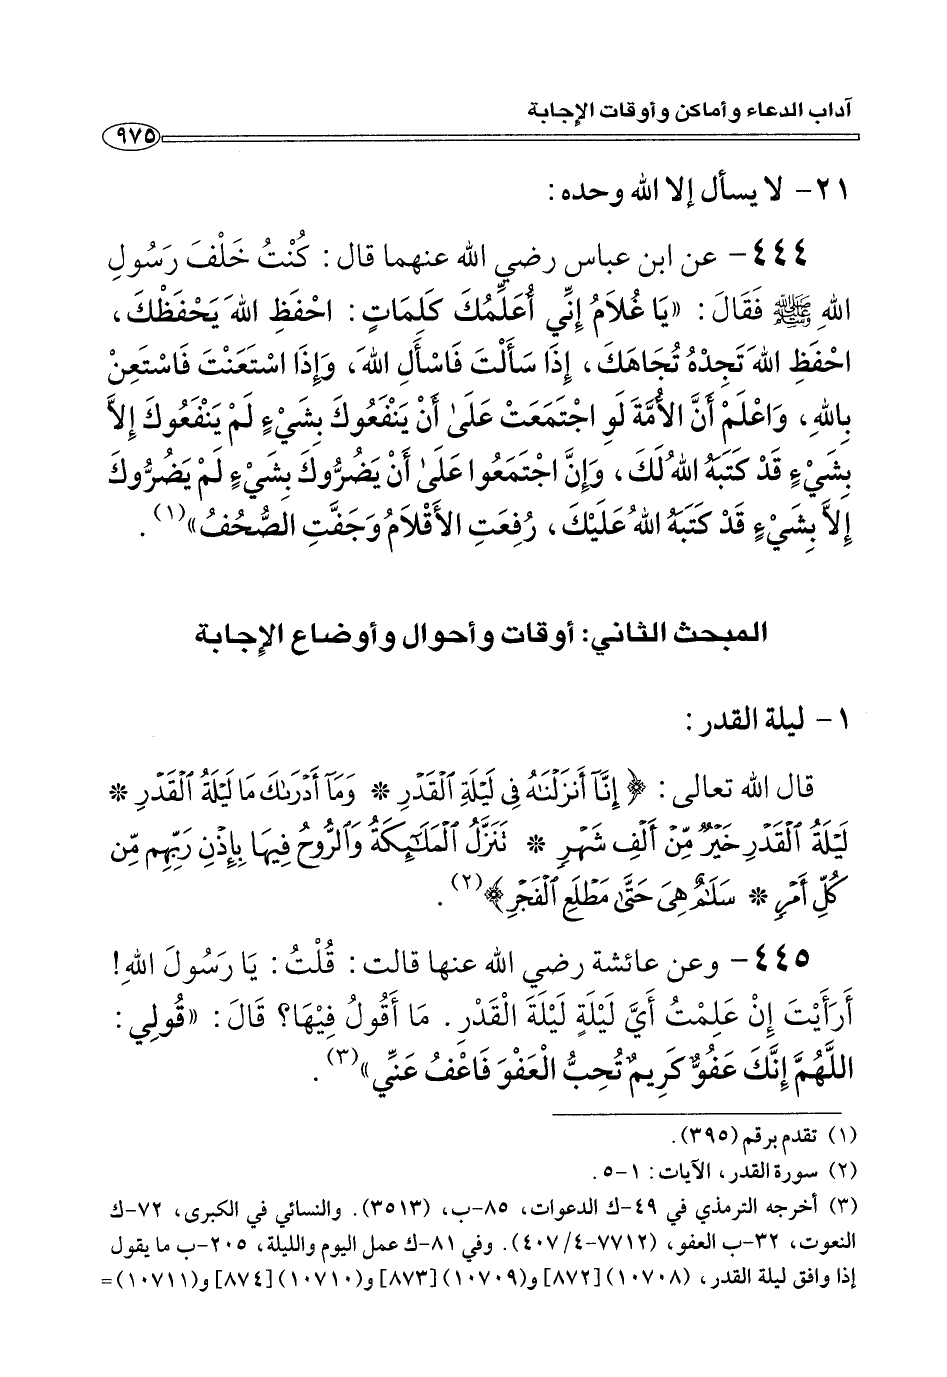 آداب الدعاء وأماكن وأوقات الإجابة
٩٧٥
٢١- لا يسأل إلا الله وحده:
٤٤٤- عن ابن عباس رضي الله عنهما قال: كُنْتُ خَلْفَ رَسُولِ
اللهِ ﷺ فَقَالَ: «يَا غُلَامُ إِنِّي أُعَلِّمُكَ كَلِمَاتٍ: احْفَظِ اللهَ يَحْفَظْكَ،
احْفَظِ اللهَ تَجِدْهُ تُجَاهَكَ، إِذَا سَأَلْتَ فَاسْأَلِ اللهَ، وَإِذَا اسْتَعَنْتَ فَاسْتَعِنْ
بِاللهِ، وَاعْلَمْ أَنَّ الأُمَّةَ لَوِ اجْتَمَعَتْ عَلَىٰ أَنْ يَنْفَعُوكَ بِشَيْءٍ لَمْ يَنْفَعُوكَ إِلاَّ
بِشَيْءٍ قَدْ كَتَبَهُ اللهُ لَكَ، وَإِنَّ اجْتَمَعُوا عَلَىٰ أَنْ يَضُرُّوكَ بِشَيْءٍ لَمْ يَضُرُّوكَ
إِلاَّ بِشَيْءٍ قَدْ كَتَبَهُ اللهُ عَلَيْكَ، رُفِعَتِ الأَقْلَامُ وَجَفَّتِ الصُّحُفُ»(١).
المبحث الثاني: أوقات وأحوال وأوضاع الإجابة
١- ليلة القدر:
قال الله تعالى: ﴿إِنَّآ أَنزَلْنَٰهُ فِى لَيْلَةِ ٱلْقَدْرِ * وَمَآ أَدْرَىٰكَ مَا لَيْلَةُ ٱلْقَدْرِ *
لَيْلَةُ ٱلْقَدْرِ خَيْرٌ مِّنْ أَلْفِ شَهْرٍ * تَنَزَّلُ ٱلْمَلَٰٓئِكَةُ وَٱلرُّوحُ فِيهَا بِإِذْنِ رَبِّهِم مِّن
كُلِّ أَمْرٍ * سَلَٰمٌ هِىَ حَتَّىٰ مَطْلَعِ ٱلْفَجْرِ﴾(٢).
٤٤٥- وعن عائشة رضي الله عنها قالت: قُلْتُ: يَا رَسُولَ اللهِ!
أَرَأَيْتَ إِنْ عَلِمْتُ أَيَّ لَيْلَةٍ لَيْلَةَ الْقَدْرِ. مَا أَقُولُ فِيْهَا؟ قَالَ: «قُولِي:
اللَّهُمَّ إِنَّكَ عَفُوٌّ كَرِيمٌ تُحِبُّ الْعَفْوَ فَاعْفُ عَنِّي»(٣).
(١) تقدم برقم (٣٩٥).
(٢) سورة القدر، الآيات: ١-٥.
(٣) أخرجه الترمذي في ٤٩-ك الدعوات، ٨٥-ب، (٣٥١٣). والنسائي في الكبرى، ٧٢-ك
النعوت، ٣٢-ب العفو، (٧٧١٢-٤/ ٤٠٧). وفي ٨١-ك عمل اليوم والليلة، ٢٠٥-ب ما يقول
إذا وافق ليلة القدر، (١٠٧٠٨)[٨٧٢] و(١٠٧٠٩)[٨٧٣] و(١٠٧١٠)[٨٧٤] و(١٠٧١١)=